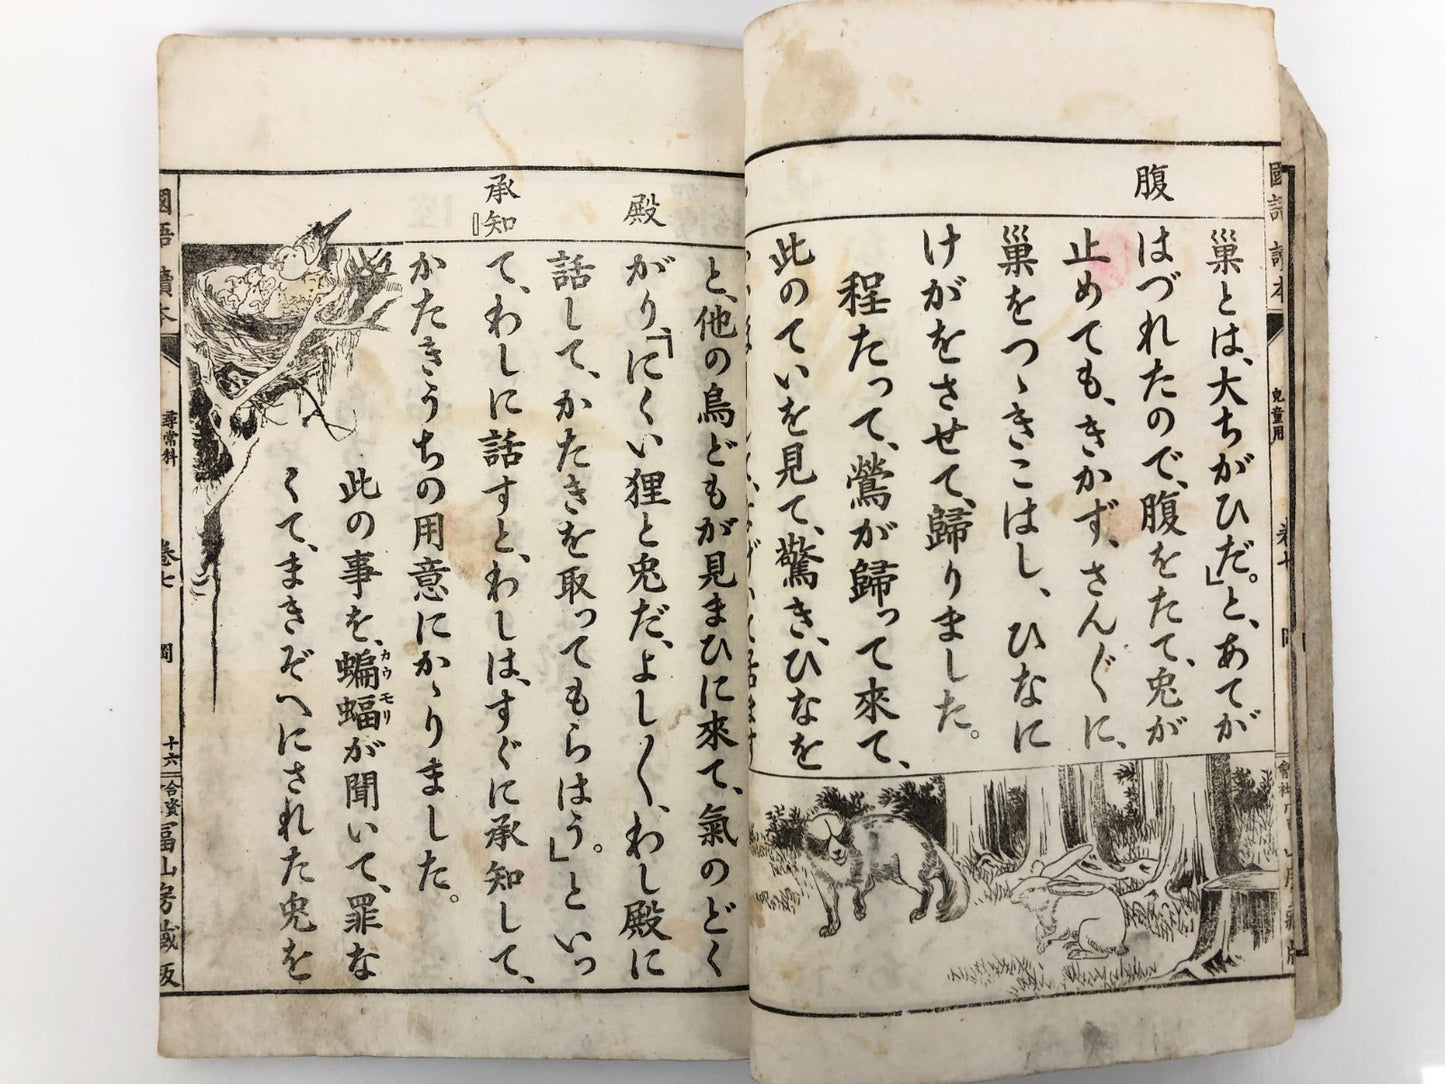 腹
巣とは、大ちがひだ。」と、あてが
はづれたので、腹をたて、兎が
止めても、きかず、さん〴〵に、
巣をつゝきこはし、ひなに
けがをさせて、歸りました。
程たって、鶯が歸って來て、
此のていを見て、驚き、ひなを
殿
承知
と、他の鳥どもが見まひに來て、氣のどく
がり、「にくい狸と兎だ、よし〳〵、わし殿に
話して、かたきを取ってもらはう。」といっ
て、わしに話すと、わしは、すぐに承知して、
かたきうちの用意にかゝりました。
此の事を、蝙蝠が聞いて、罪な
カウモリ
くて、まきぞへにされた兎を
國語讀本
尋常科
卷七
十六
合資
冨山房藏版
國語讀本
兒童用
卷七